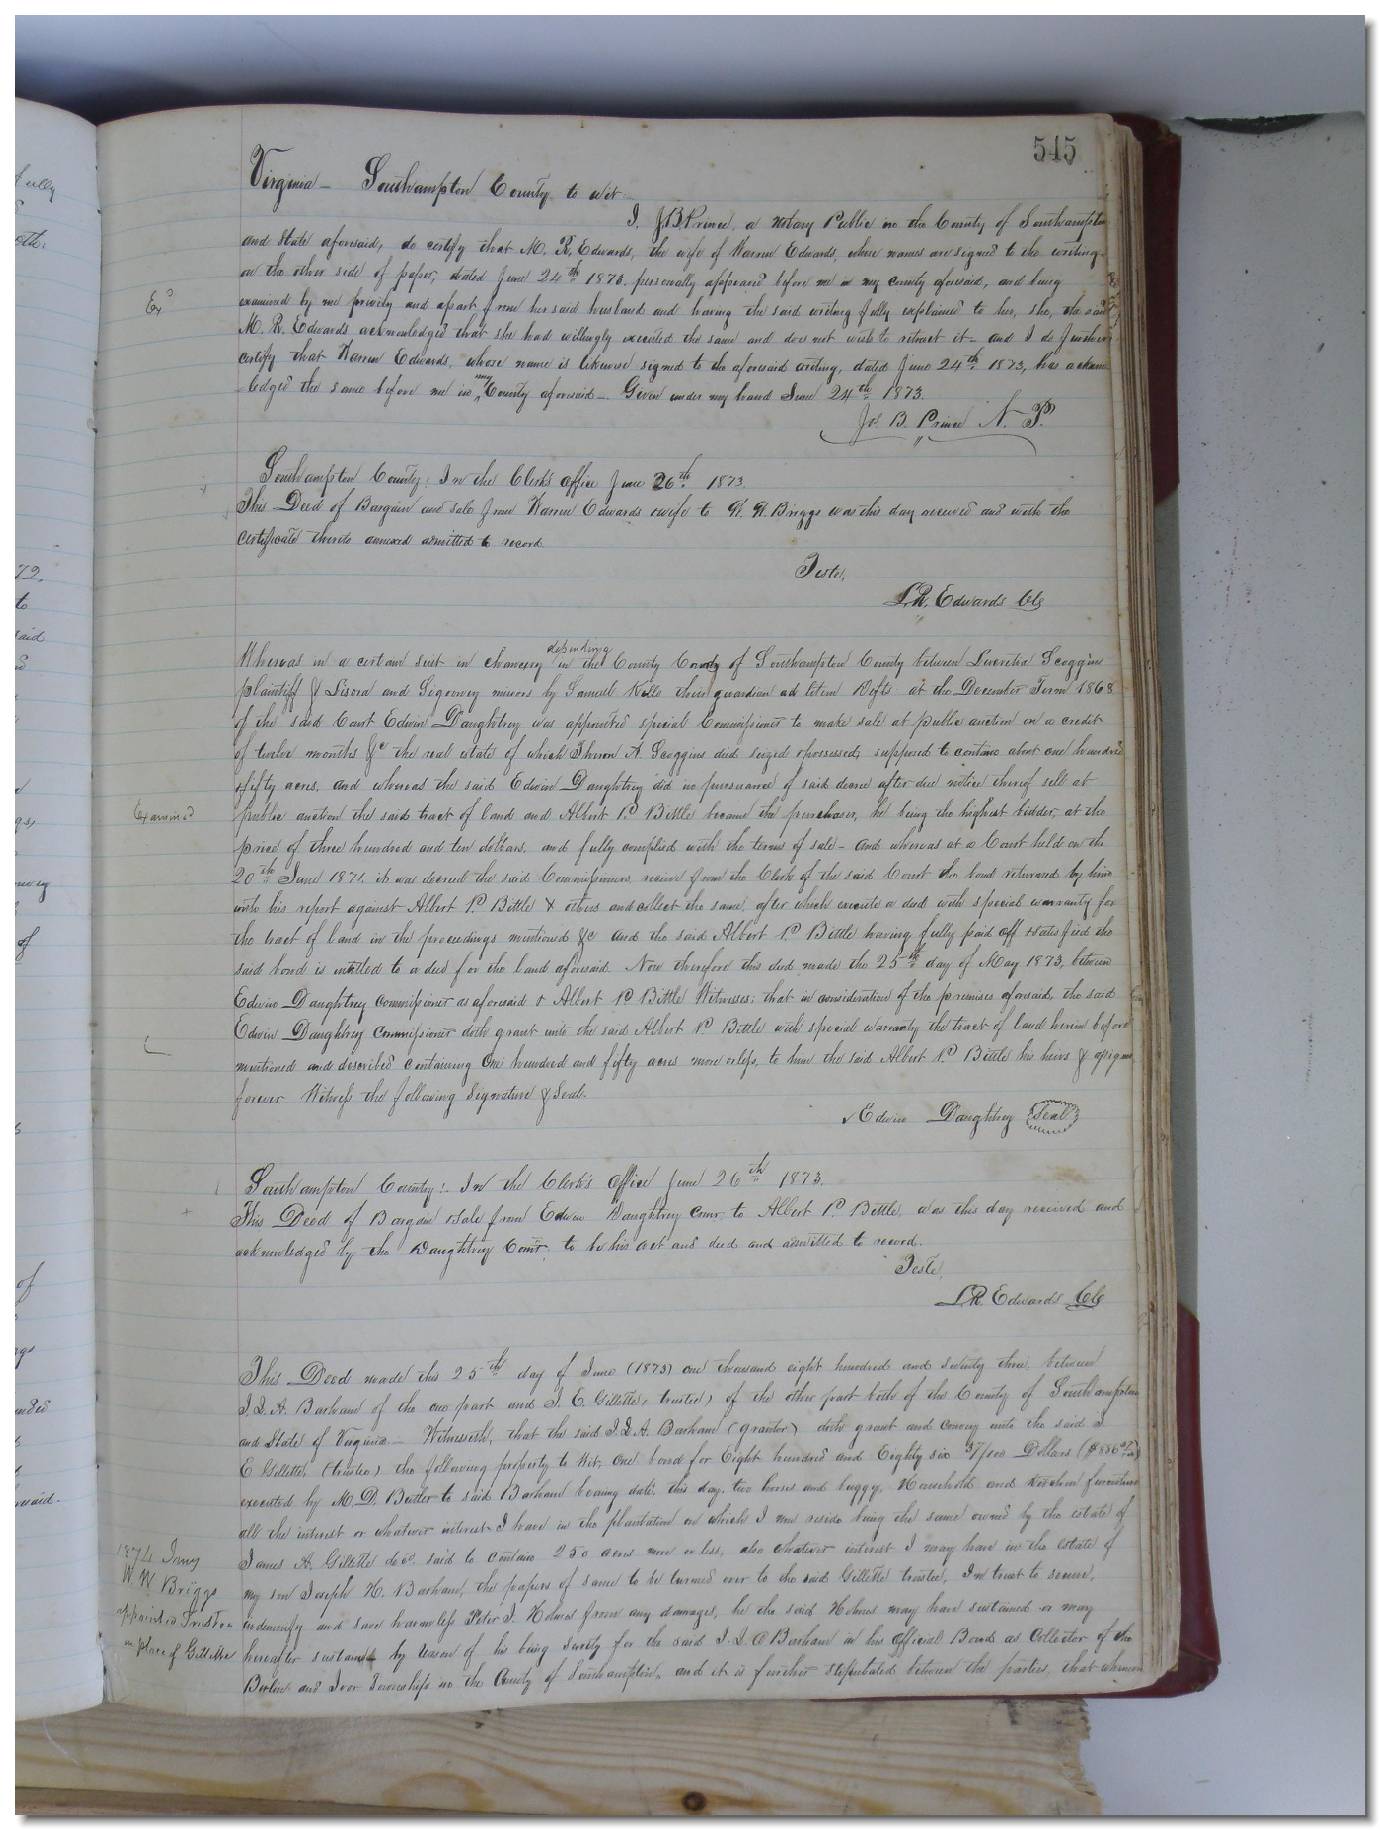 545
Virginia - Southampton County to wit
I, J.B. Prince, a notary Public in the County of Southampton
and State aforesaid, do certify that M. R. Edwards, the wife of Edwards, whose names are signed to the writing
on the other side of paper, dated June 24th 1873, personally appeared before me in my county aforesaid, and being
examined by me privily and apart from her said husband and having the said writing fully explained to her, she, the said
M. R. Edwards acknowledged that she had willingly executed the same and does not wish to retract it - and I do further
certify that Edwards, whose name is likewise signed to the aforesaid writing, dated June 24th 1873, has acknow
-ledged the same before me in my County aforesaid - Given under my hand June 24th 1873.
Jos. B. Prince N. P.
Exd
Southampton County: In the Clerk's office June 26th 1873.
This Deed of Bargain and sale from Edwards & wife to Briggs was this day received and with the
certificate thereto annexed admitted to record
Teste,
L.R. Edwards Clk
Whereas in a certain suit in chancery depending in the County County of Southampton County between Scoggins
plaintiff & and minors by Samuel their guardian ad litem Defts. at the December Term 1868
of the said Court Edwin Daughtrey was appointed special Commissioner to make sale at public auction on a credit
of twelve months &c the real estate of which A. Scoggins died seized & possessed, supposed to contain about one hundred
& fifty acres, and whereas the said Edwin Daughtrey did in pursuance of said decree after due notice thereof sell at
public auction the said tract of land and Albert P. Bittle became the purchaser, he being the highest bidder, at the
price of three hundred and ten dollars, and fully complied with the terms of sale - and whereas at a Court held on the
20th June 1871 it was decreed the said Commissioner receive from the Clerk of the said Court the bond returned by him
with his report against Albert P. Bittle & others and collect the same, after which execute a deed with special warranty for
the tract of land in the proceedings mentioned &c and the said Albert P. Bittle having fully paid off & satisfied the
said bond is intitled to a deed for the land aforesaid. Now therefore this deed made the 25th day of May 1873, between
Edwin Daughtrey Commissioner as aforesaid & Albert P. Bittle Witnesses; that in consideration of the premises aforesaid, the said
Edwin Daughtrey Commissioner doth grant unto the said Albert P. Bittle with special warranty the tract of land herein before
mentioned and described containing One hundred and fifty acres more or less, to him the said Albert P. Bittle his heirs & assigns
forever Witness the following signature & seal.
Edwin Daughtrey Seal
Examined
Southampton County: In the Clerk's Office June 26th 1873.
This Deed of Bargain & Sale from Edwin Daughtrey Comr. to Albert P. Bittle, was this day received and
acknowledged by the Daughtrey Comr. to be his act and deed and admitted to record.
Teste,
L.R. Edwards Clk
This Deed made this 25th day of June (1873) one thousand eight hundred and seventy three, between
Barham of the one part and E. Gillette, trustee) of the other part both of the County of Southampton
and State of Virginia - Witnesseth, that the said Barham (grantor) doth grant and convey unto the said
E Gillette, (trustee) the following property to wit; one bond for Eight hundred and Eighty six /100 Dollars
executed by M. D. Butler to said Barham bearing date, this day, two horses and buggy, Household and Kitchen furniture
all the interest or whatever interest I have in the plantation on which I now reside being the same owned by the estate of
James A. Gillette said to contain 250 acres more or less, also whatever interest I may have in the estate of
my son Joseph H. Barham, the papers of same to be turned over to the said Gillette trustee, In trust to secure,
indemnify and save harmless Peter J. Holmes from any damages, he the said Holmes may have sustained or may
hereafter sustain by reason of his being surety for the said Barham in his Official Bond as Collector of the
Berlin and Ivor Townships in the County of Southampton, and it is further stipulated between the parties, that whereas
1874
W. W Briggs
appointed Trustee
in place of Gillette